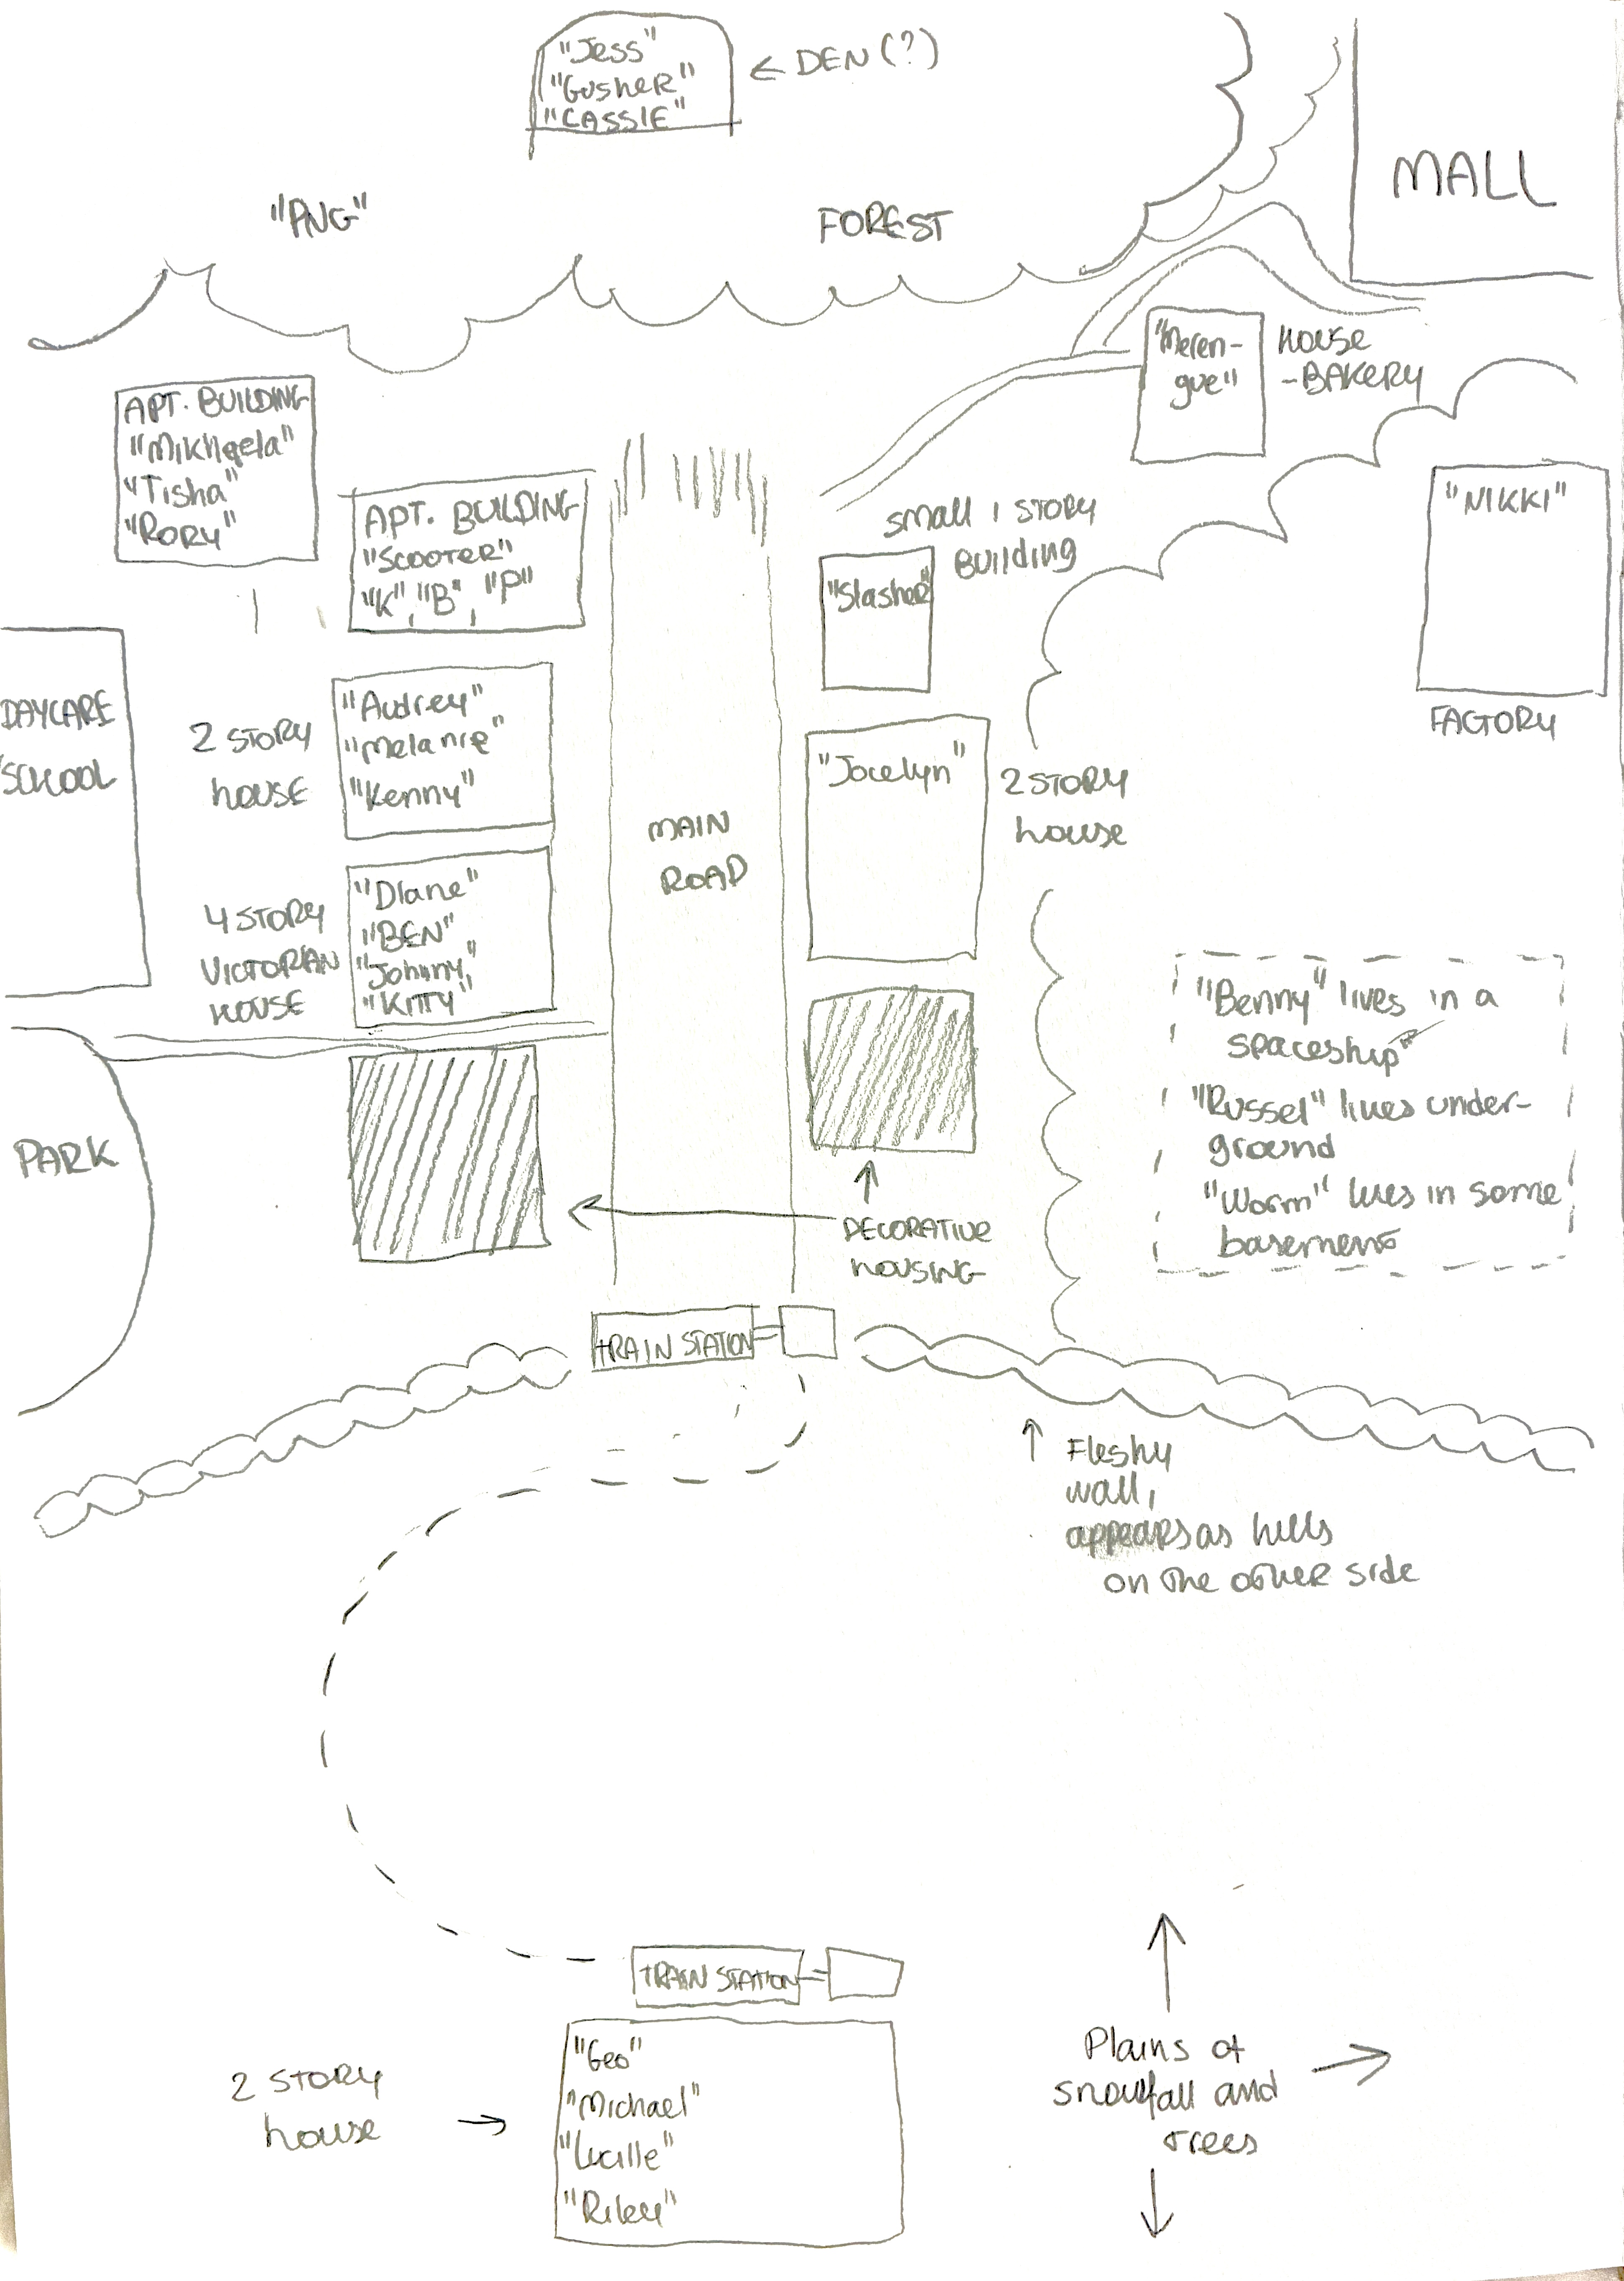 "Jess"
"Gusher"
"CASSIE"
← DEN (?)
"PNG"
FOREST
MALL
"Meren-
gue"
HOUSE
-BAKERY
APT. BUILDING
"Mikhaela"
"Tisha"
"Rory"
APT. BUILDING
"SCOOTER"
"K", "B", "P"
small 1 STORY
BUilding
"Slasher"
"NIKKI"
FACTORY
DAYCARE
SCHOOL
2 STORY
house
"Audrey"
"Melanie"
"Kenny"
MAIN
ROAD
"Jocelyn"
2 STORY
house
4 STORY
VICTORIAN
HOUSE
"Diane"
"BEN"
"Johnny"
"KITTY"
"Benny" lives in a
spaceship
"Russel" lives under-
ground
"Worm" lives in some
basement
PARK
DECORATIVE
HOUSING
TRAIN STATION
↑ Fleshy
wall,
appears as hills
on the other side
TRAIN STATION
2 STORY
house →
"Geo"
"Michael"
"Lucille"
"Riley"
Plains of
snowfall and
trees